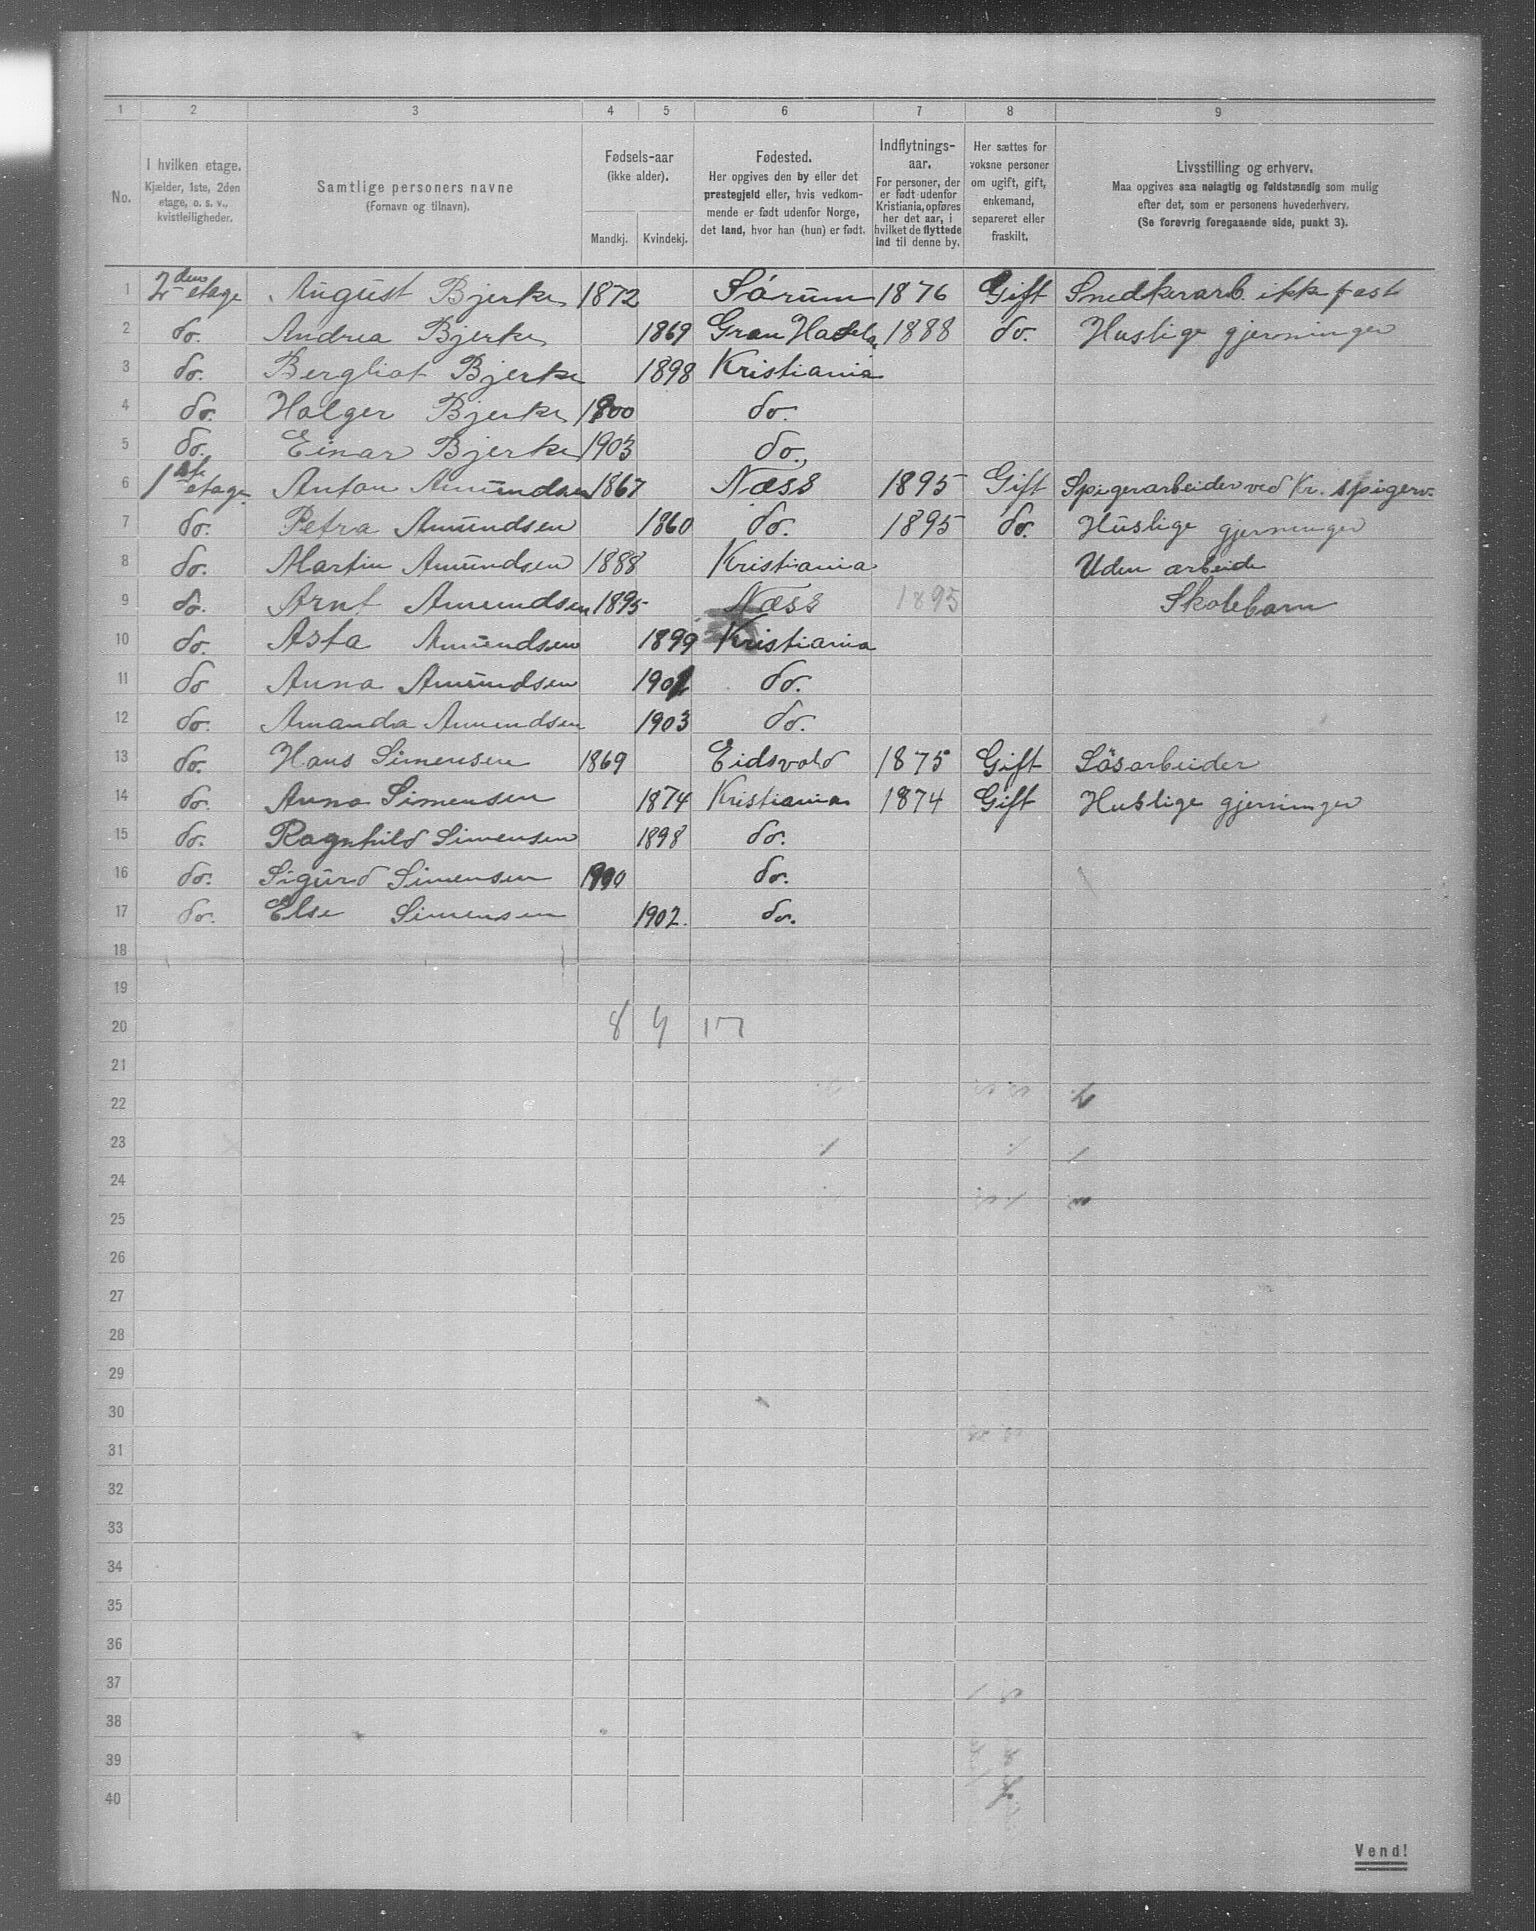 1 2 3 4 5 6 7 8 9
No.
I hvilken etage.
Kjælder, 1ste, 2den
etage, o. s. v.,
kvistleiligheder.
Samtlige personers navne
(Fornavn og tilnavn).
Fødsels-aar
(ikke alder).
Mandkj. Kvindekj.
Fødested.
Her opgives den by eller det
prestegjeld eller, hvis vedkom-
mende er født udenfor Norge,
det land, hvor han (hun) er født.
Indflytnings-
aar.
For personer, der
er født udenfor
Kristiania, opføres
her det aar, i
hvilket de flyttede
ind til denne by.
Her sættes for
voksne personer
om ugift, gift,
enkemand,
separeret eller
fraskilt.
Livsstilling og erhverv.
Maa opgives saa nøiagtig og fuldstændig som mulig
efter det, som er personens hovederhverv.
(Se forøvrig foregaaende side, punkt 3).
1 2den etage August Bjerke 1872 Sørum 1876 Gift Snedkerarb. ikk fast
2 do. Andrea Bjerke 1869 Gran Hadela. 1888 do. Huslige gjerninger
3 do. Bergliot Bjerke 1898 Kristiania
4 do. Holger Bjerke 1900 do.
5 do. Einar Bjerke 1903 do.
6 1ste etage Anton Amundsen 1867 Næss 1895 Gift Spigerarbeider ved Kr. spigerv.
7 do. Petra Amundsen 1860 do. 1895 do. Huslige gjerninger
8 do. Martin Amundsen 1888 Kristiania Uden arbeide
9 do. Arnt Amundsen 1895 Næss 1895 Skolebarn
10 do. Asta Amundsen 1899 Kristiania
11 do Anna Amundsen 1901 do.
12 do. Amanda Amundsen 1903 do.
13 do. Hans Simensen 1869 Eidsvold 1875 Gift Løsarbeider
14 do. Anna Simensen 1874 Kristiania 1874 Gift Huslige gjerninger
15 do. Ragnhild Simensen 1898 do.
16 do. Sigurd Simensen 1900 do.
17 do. Else Simensen 1902. do.
18
19
20 8 9 17
21
22
23
24
25
26
27
28
29
30
31
32
33
34
35
36
37
38
39
40
Vend!